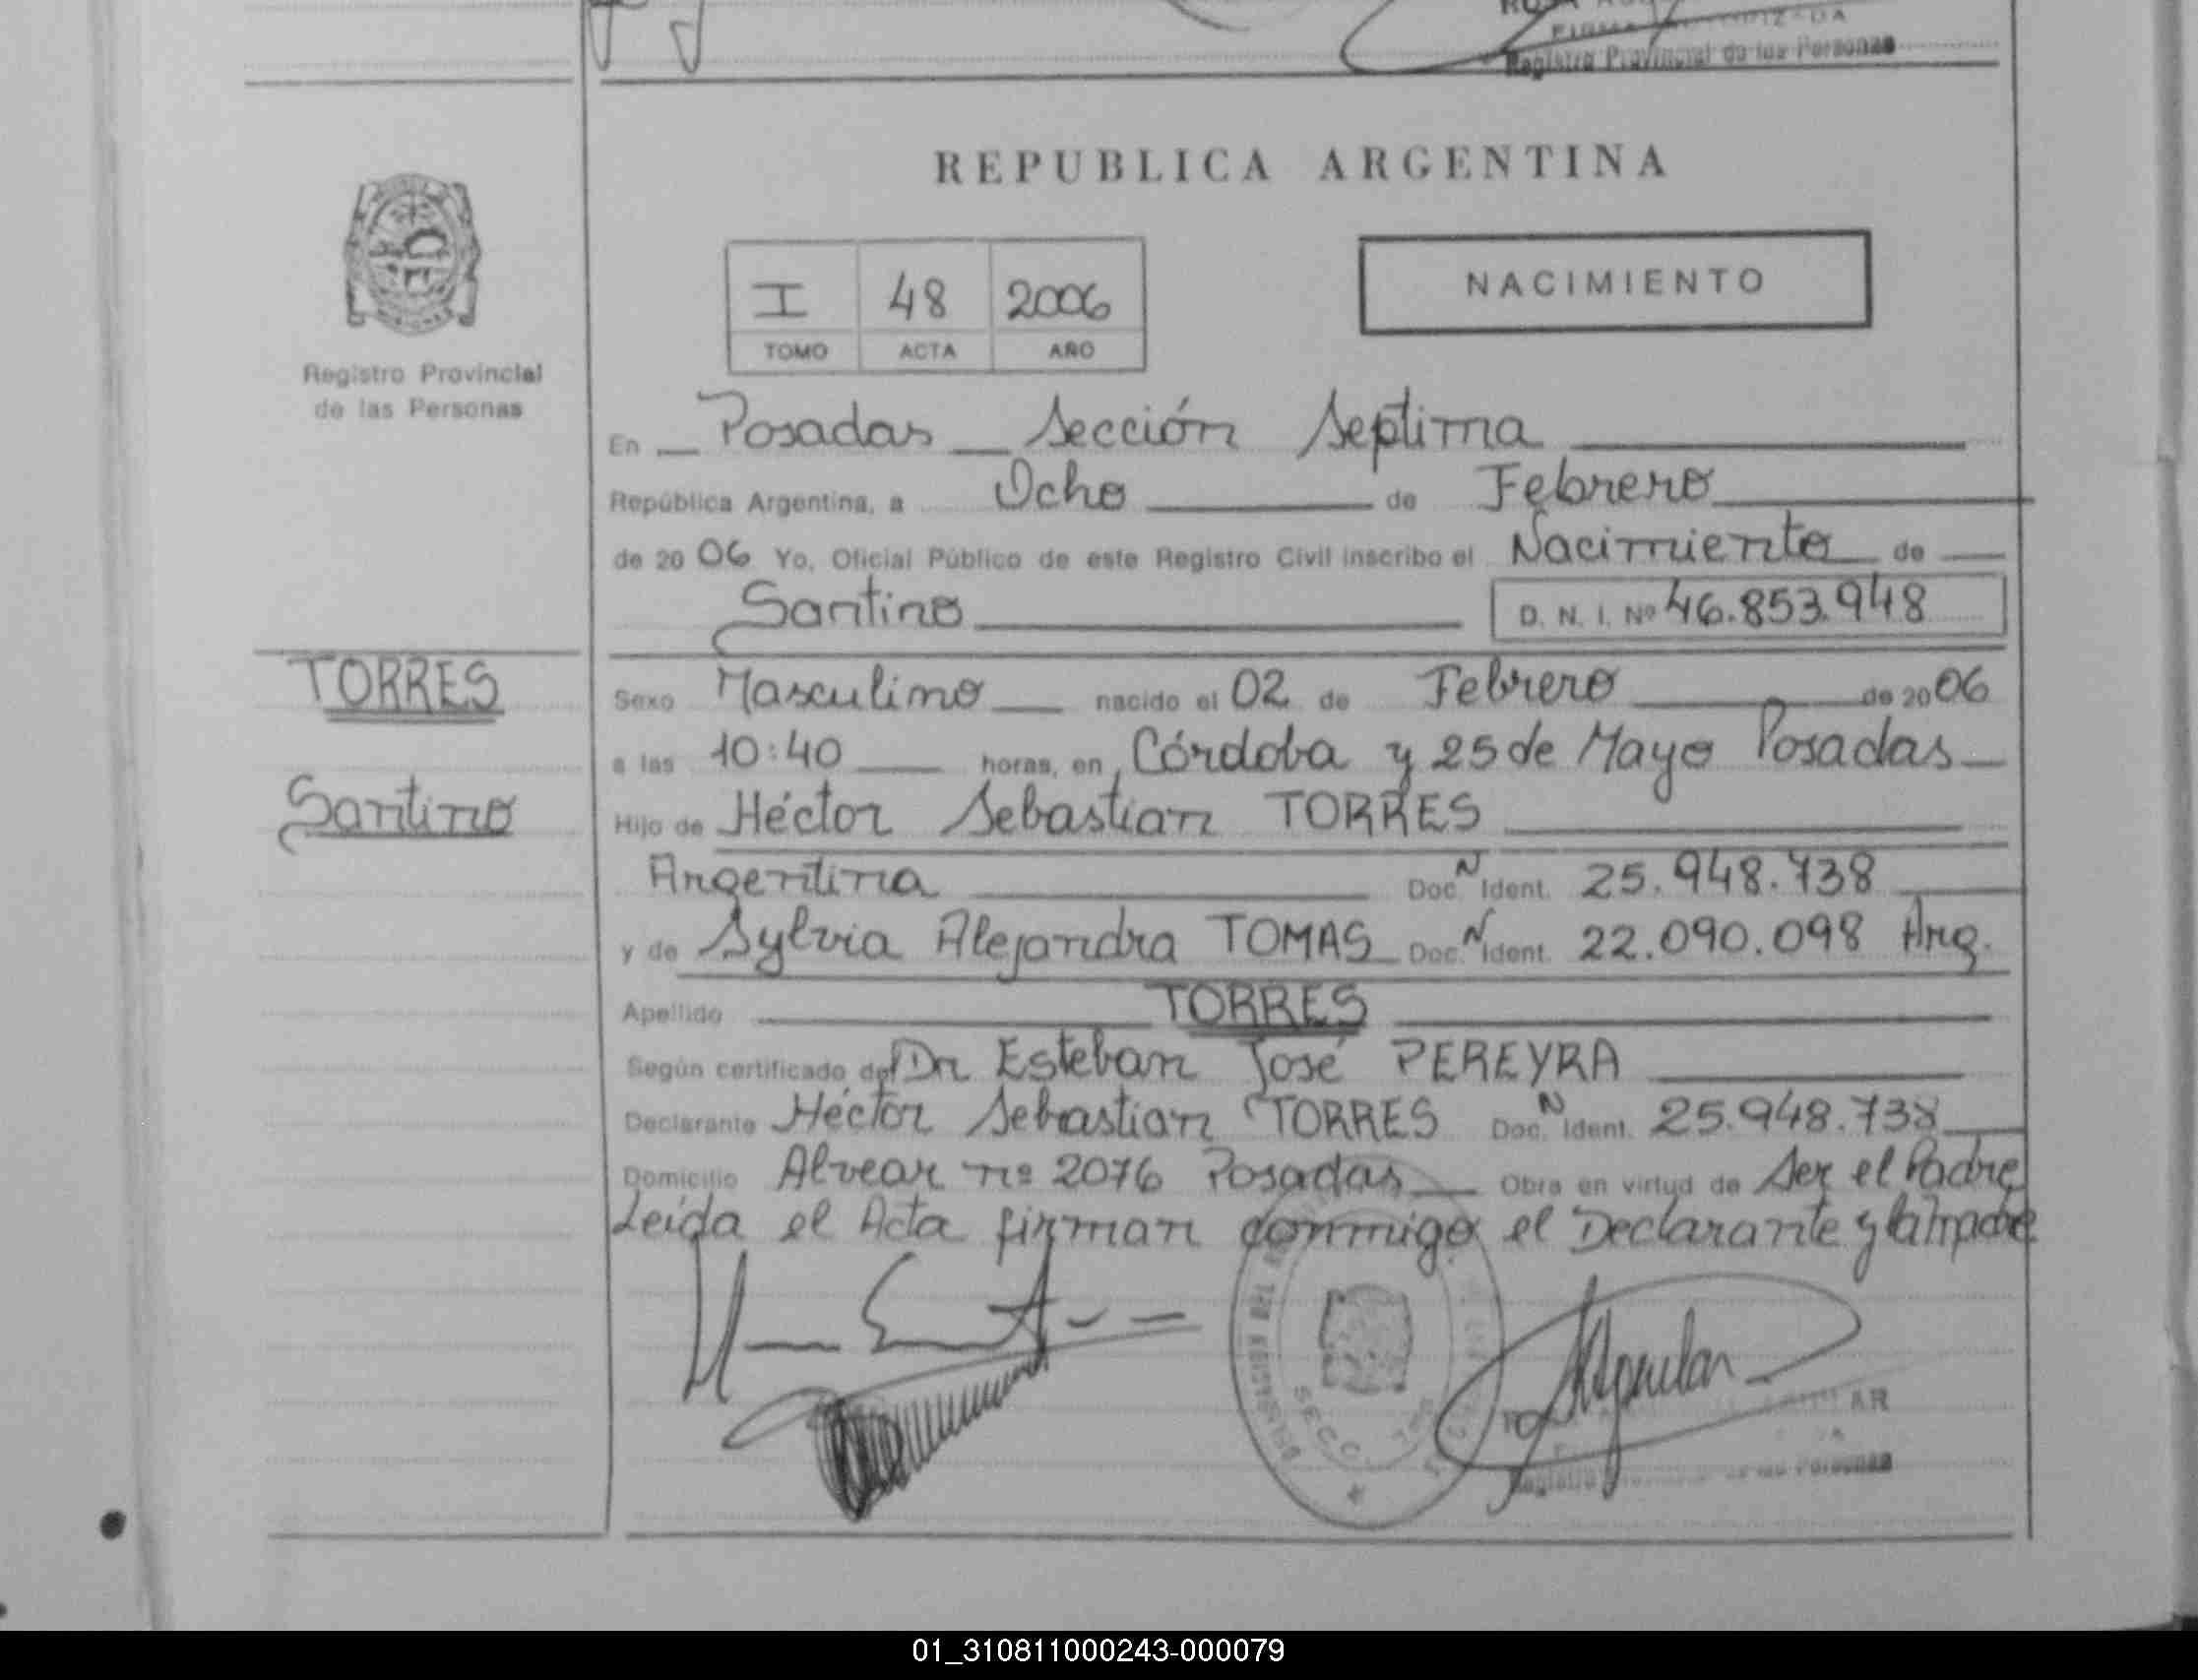 Registro Provincial de las Personas
REPUBLICA ARGENTINA
I 48 2006
TOMO ACTA AÑO
NACIMIENTO
Registro Provincial
de las Personas
En Posadas Sección Septima
República Argentina, a Ocho de Febrero
de 2006 Yo, Oficial Público de este Registro Civil inscribo el Nacimiento de
Santino D. N. I. Nº 46.853.948
TORRES
Santino
Sexo Masculino nacido el 02 de Febrero de 2006
a las 10:40 horas, en Córdoba y 25 de Mayo Posadas
Hijo de Héctor Sebastian TORRES
Argentina Doc. N Ident. 25.948.738
y de Sylvia Alejandra TOMAS Doc. N Ident. 22.090.098 Arg.
Apellido TORRES
Según certificado del Dr Esteban José PEREYRA
Declarante Héctor Sebastian TORRES Doc. N Ident. 25.948.738
Domicilio Alvear nº 2076 Posadas Obra en virtud de Ser el Padre
Leída el Acta firman conmigo el Declarante y la madre
SECC.
Personas
01_310811000243-000079